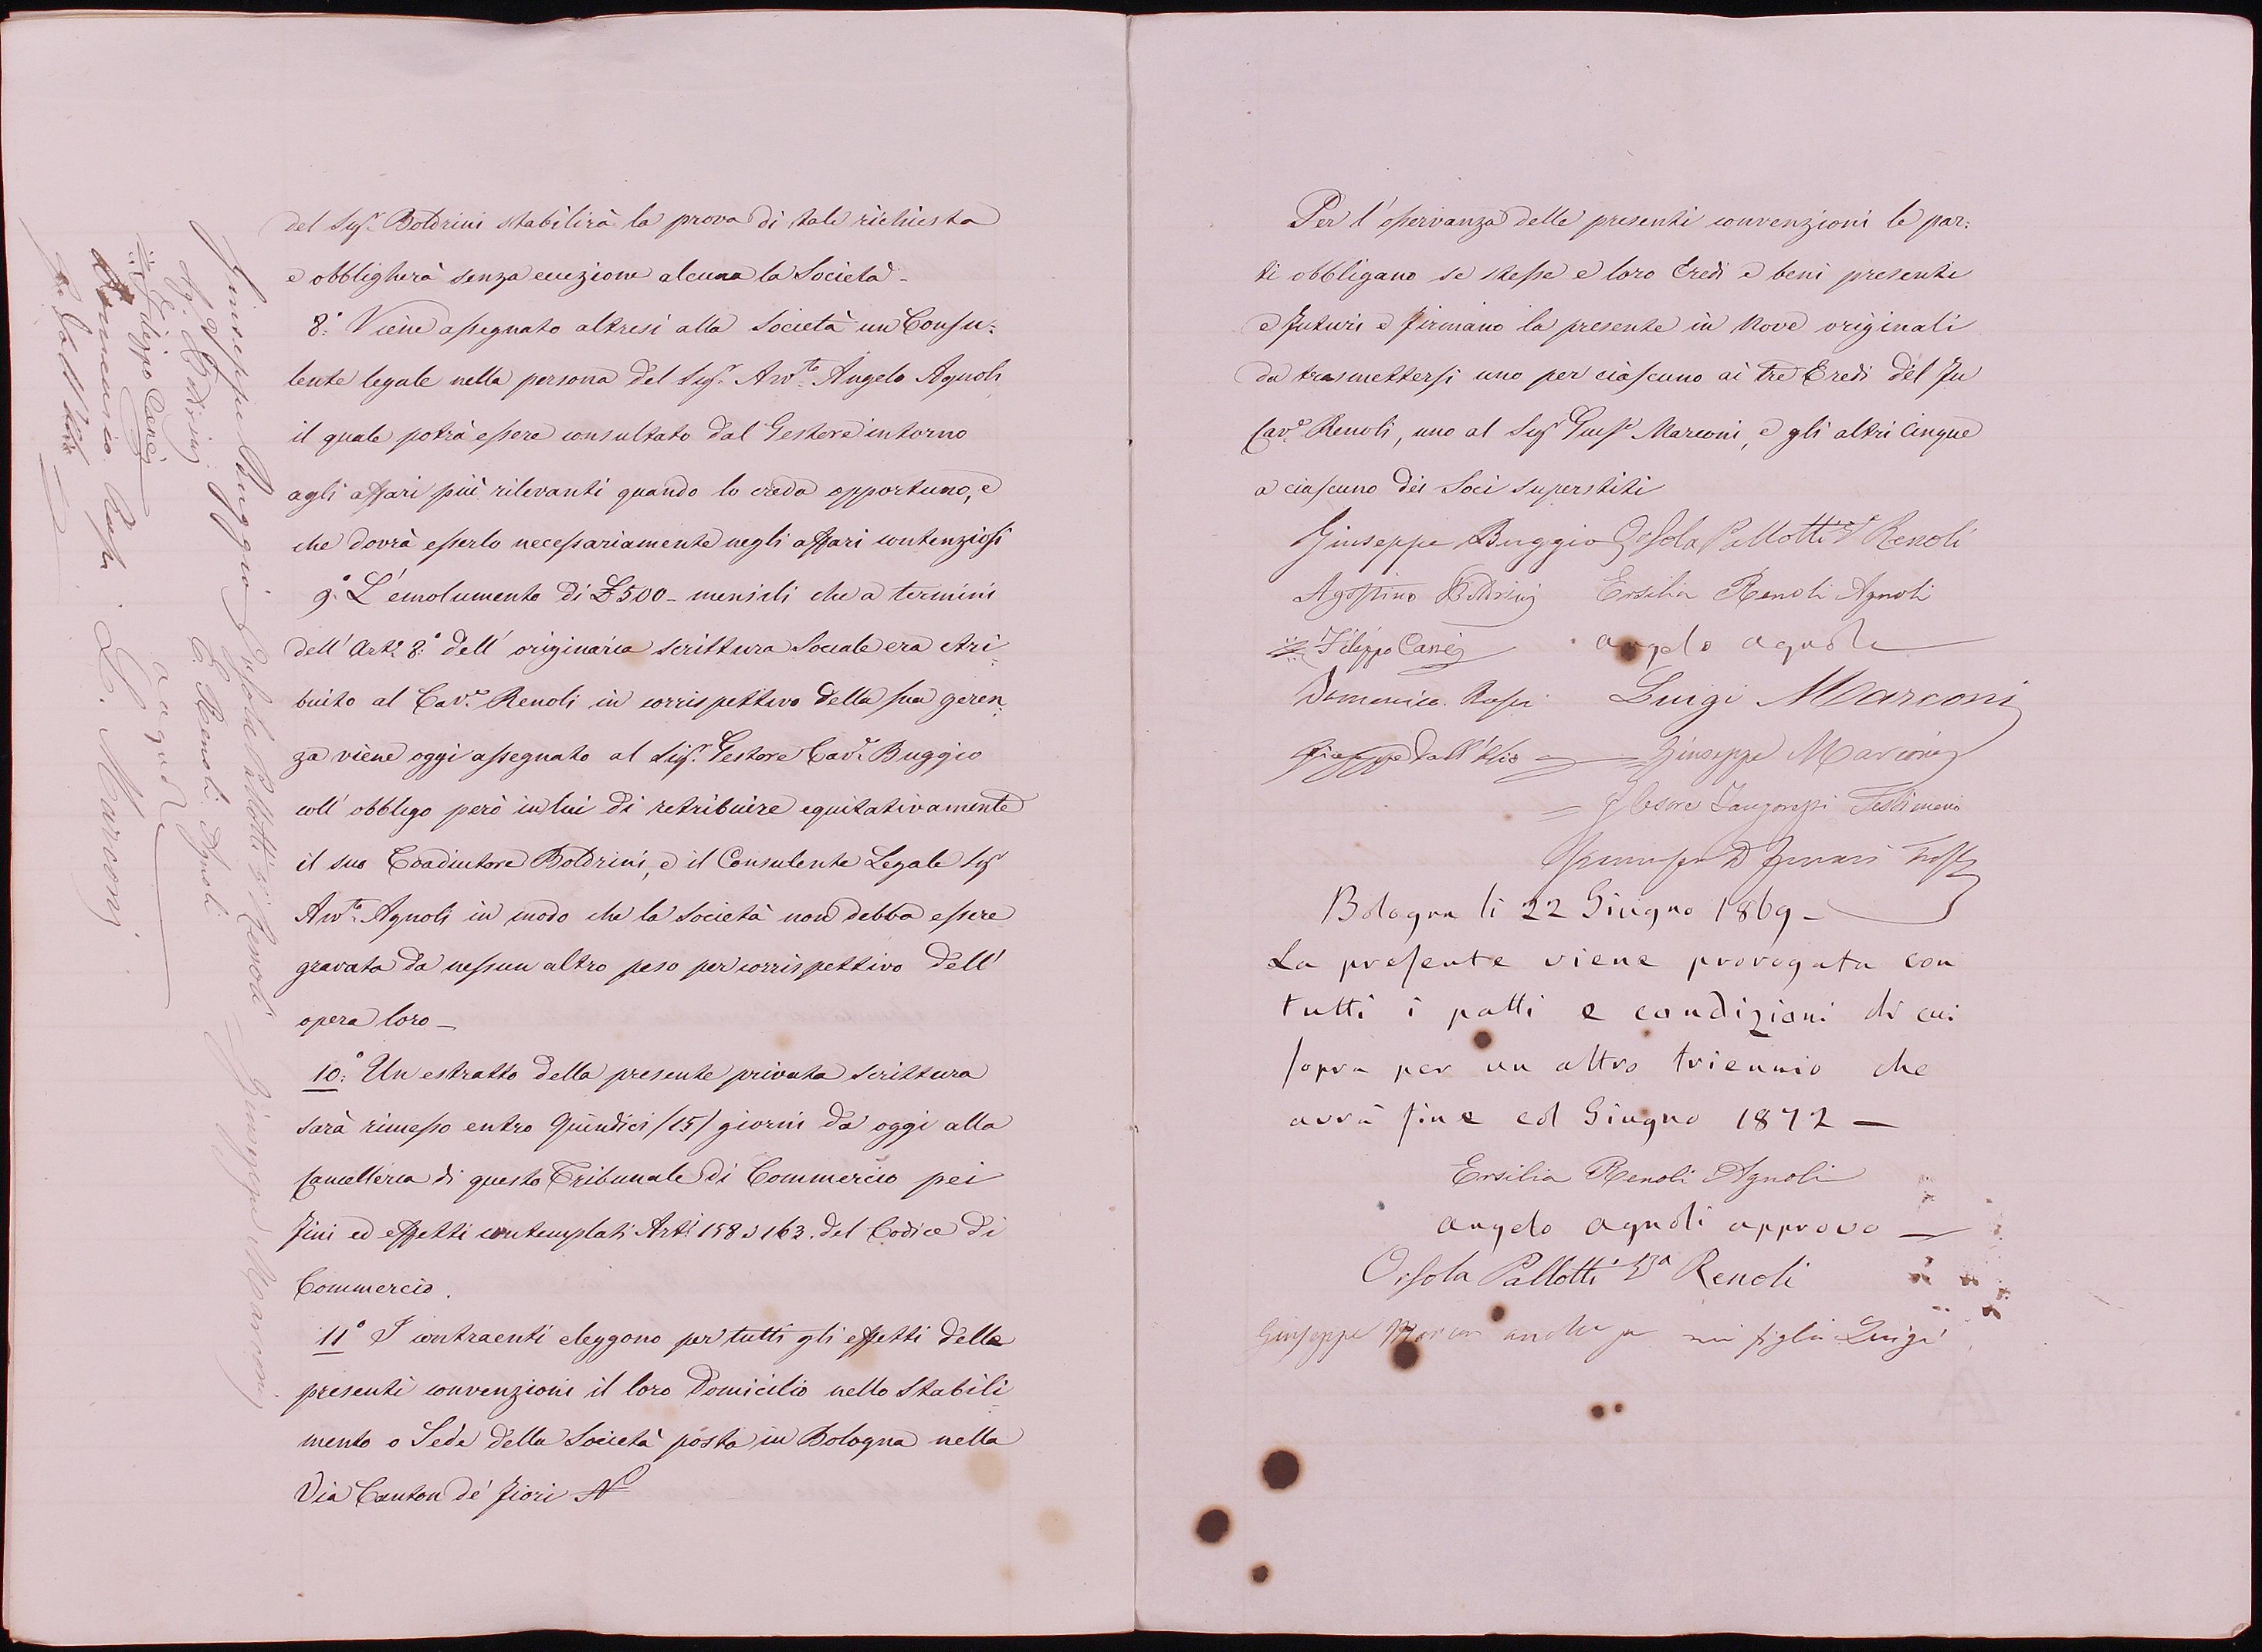 del Sigr. Boldrini stabilirà la prova di tale richiesta
e obbligherà senza eccezione alcuna la Società -
8.° Viene assegnato altresì alla Società un Consu:
lente legale nella persona del Sigr. Avvto. Angelo Agnoli
il quale potrà essere consultato dal Gestore intorno
agli affari più rilevanti quando lo creda opportuno, e
che dovrà esserlo necessariamente negli affari contenziosi
9.° L'emolumento di £500 - mensili che a termini
dell'Arto. 8.° dell'originaria scrittura Sociale era Atri-
buito al Cave. Renoli in corrispettivo della sua geren-
za viene oggi assegnato al Sigr. Gestore Cave. Buggio
coll'obbligo però in lui di retribuire equitativamente
il suo Coadiutore Boldrini, e il Consulente Legale Sigr
Avvto. Agnoli in modo che la Società non debba essere
gravata da nessun altro peso per corrispettivo dell'
opera loro -
10.° Un estratto della presente privata scrittura
sarà rimesso entro Quindici /15/ giorni da oggi alla
Cancelleria di questo Tribunale di Commercio pei
fini ed effetti contemplati Arti. 158 e 163. del Codice di
Commercio.
11.° I contraenti eleggono per tutti gli effetti delle
presenti convenzioni il loro Domicilio nello Stabili-
mento o Sede della Società posta in Bologna nella
Via Canton de' fiori No
Giuseppe Buggio
Ag. Boldrini
Filippo Canè
Domenico Rossi
Orsola Pallotti Va Renoli
E. Renoli Agnoli
a agnoli
L. Marconi
Giuseppe Marconi
Per l'osservanza delle presenti convenzioni le par:
ti obbligano se stesse e loro Eredi e beni presenti
e futuri e firmano la presente in Nove originali
da trasmettersi uno per ciascuno ai tre Eredi del fu
Cave. Renoli, uno al Sigr Giuse. Marconi, e gli altri Cinque
a ciascuno dei Soci superstiti
Giuseppe Buggio Orsola Pallotti Va Renoli
Agostino Boldrini Ersilia Renoli Agnoli
Filippo Canè angelo agnoli
Domenico Rossi Luigi Marconi
Giuseppe Dall'Olio Giuseppe Marconi
Testimonio
Bologna li 22 Giugno 1869 -
La presente viene prorogata con
tutti i patti e condizioni di cui
sopra per un altro triennio che
avrà fine col Giugno 1872 -
Ersilia Renoli Agnoli
angelo agnoli approvo -
Orsola Pallotti Va Renoli
Giuseppe Marconi anche per mio figlio Luigi